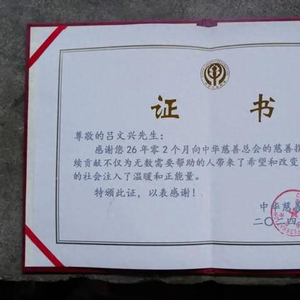 证 书
尊敬的吕文兴先生：
感谢您26年零2个月向中华慈善总会的慈善
续贡献不仅为无数需要帮助的人带来了希望和改变
的社会注入了温暖和正能量。
特颁此证，以表感谢！
中华慈
二〇二四